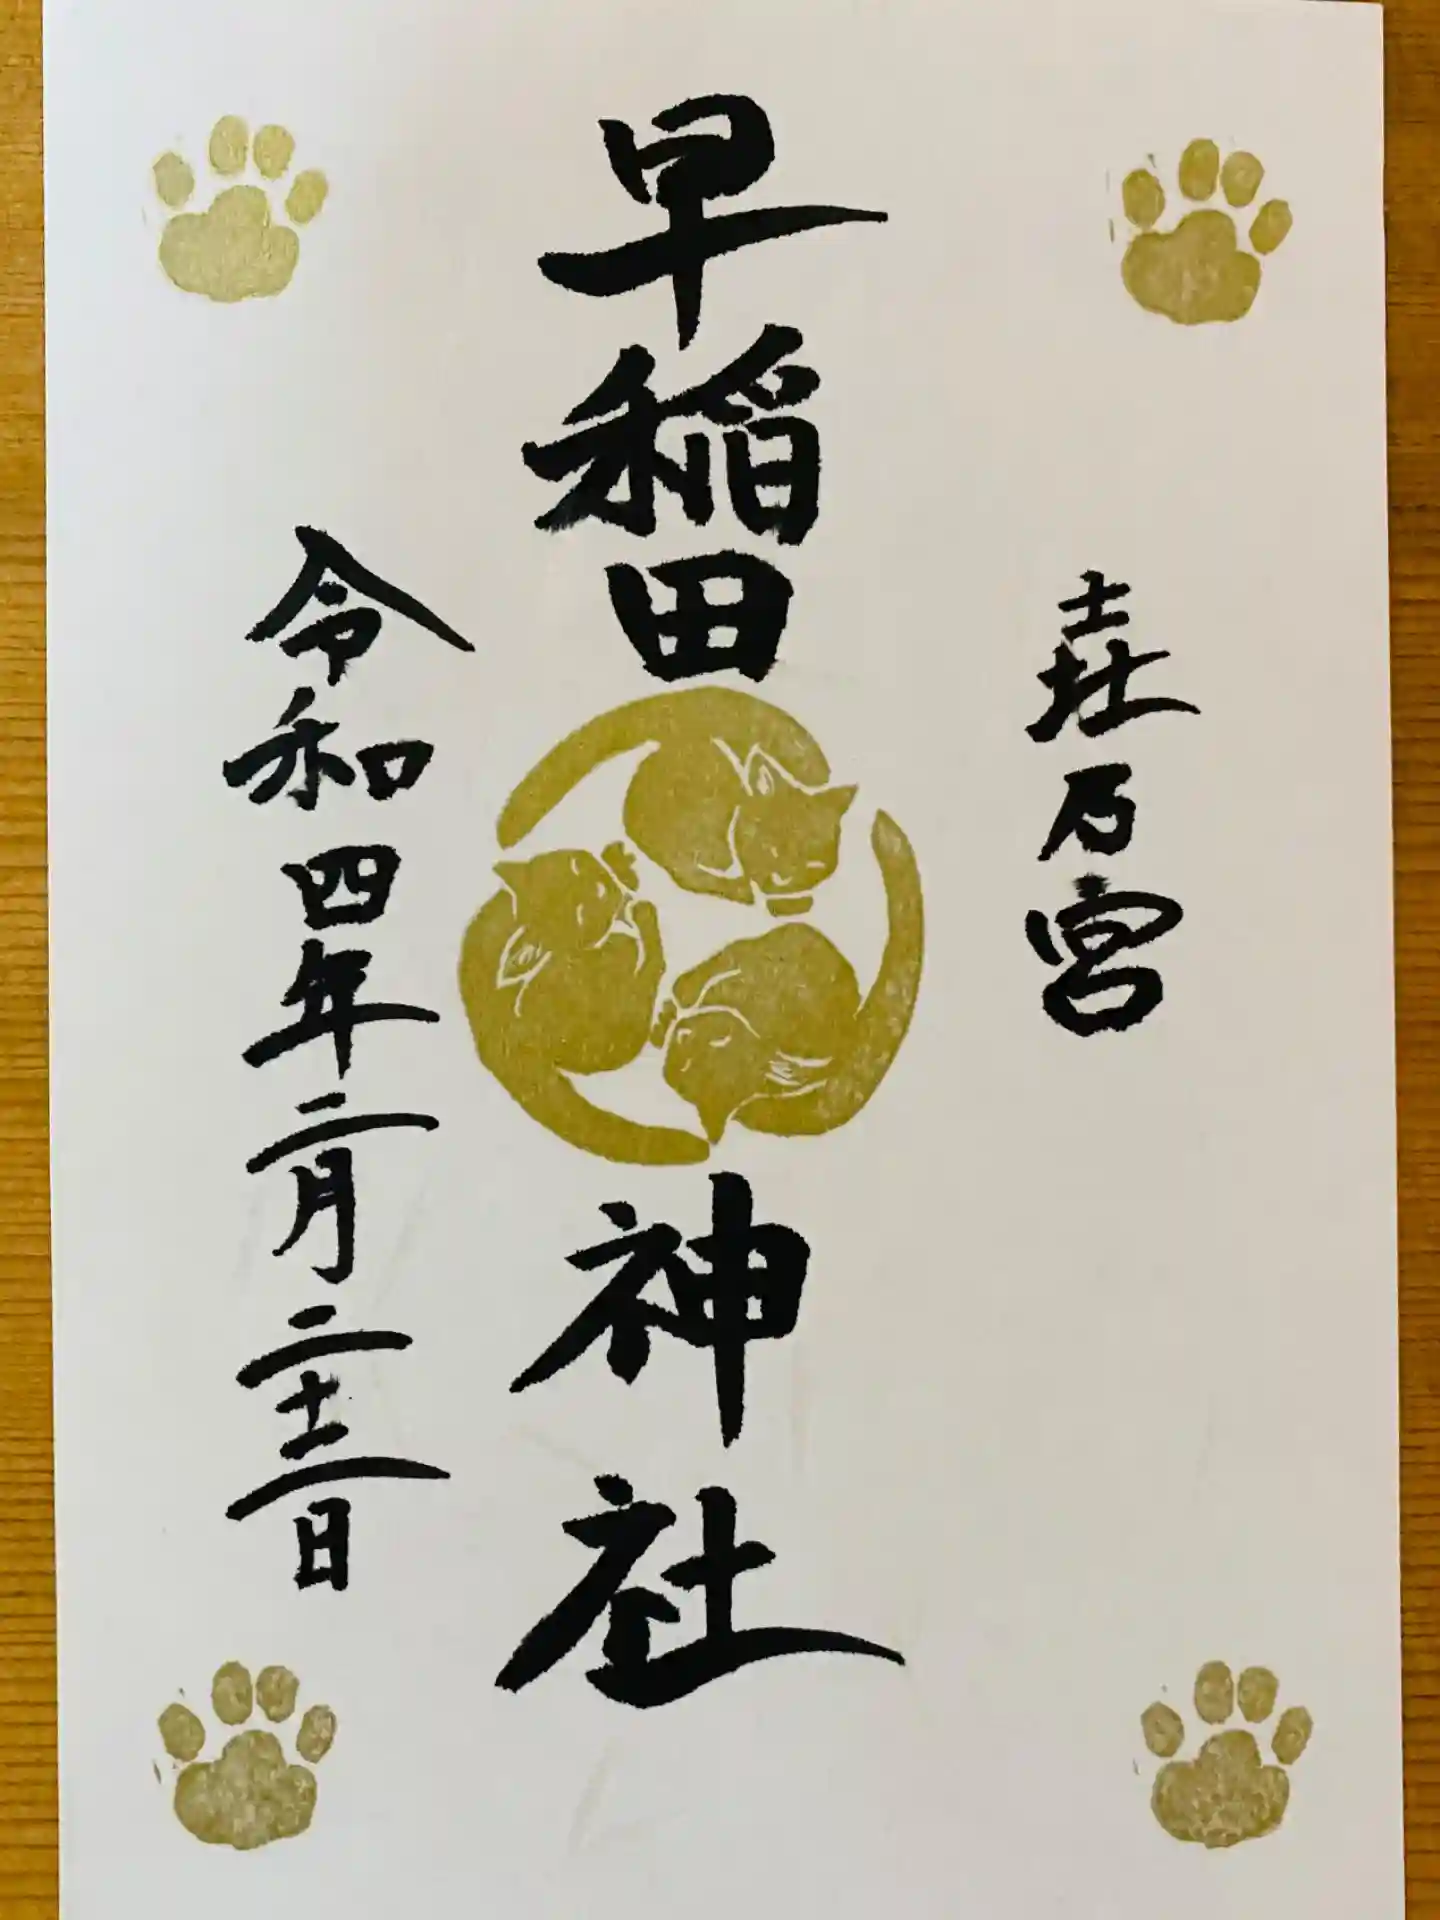 壵乃宮
早稲田神社
令和四年二月二十二日